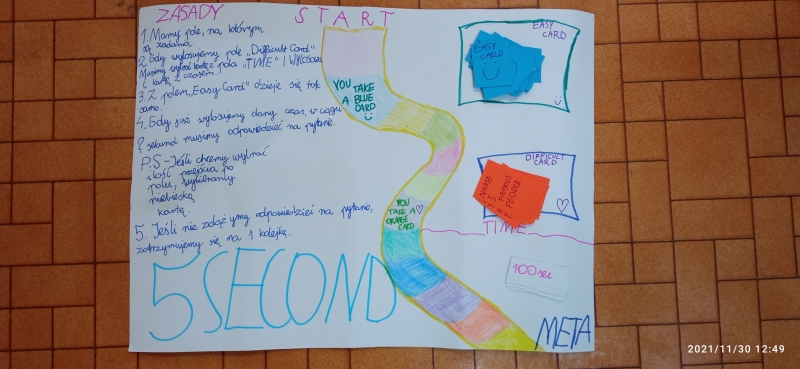 ZASADY
1. Mamy pole, na którym
są zadania.
2. Gdy wylosujemy pole „Difficult Card"
musimy wybrać kartę z pola „TIME" i wylosować
kartę z czasem.
3. Z polem „Easy Card" dzieje się tak
samo.
4. Gdy już wylosujemy dany czas, w ciągu
? sekund musimy odpowiedzieć na pytanie.
P.S - Jeśli chcemy wybrać
ilość przejścia po
polu, wybieramy
niebieską
kartę.
5. Jeśli nie zdążymy odpowiedzieć na pytanie,
zatrzymujemy się na 1 kolejkę.
5 SECOND
START
YOU TAKE
A BLUE
CARD
YOU
TAKE A
ORANGE
CARD
META
EASY
CARD
EASY
CARD
DIFFICULT
CARD
NAME
FAMOUS
PEOPLE
TIME
100 sec
2021/11/30 12:49